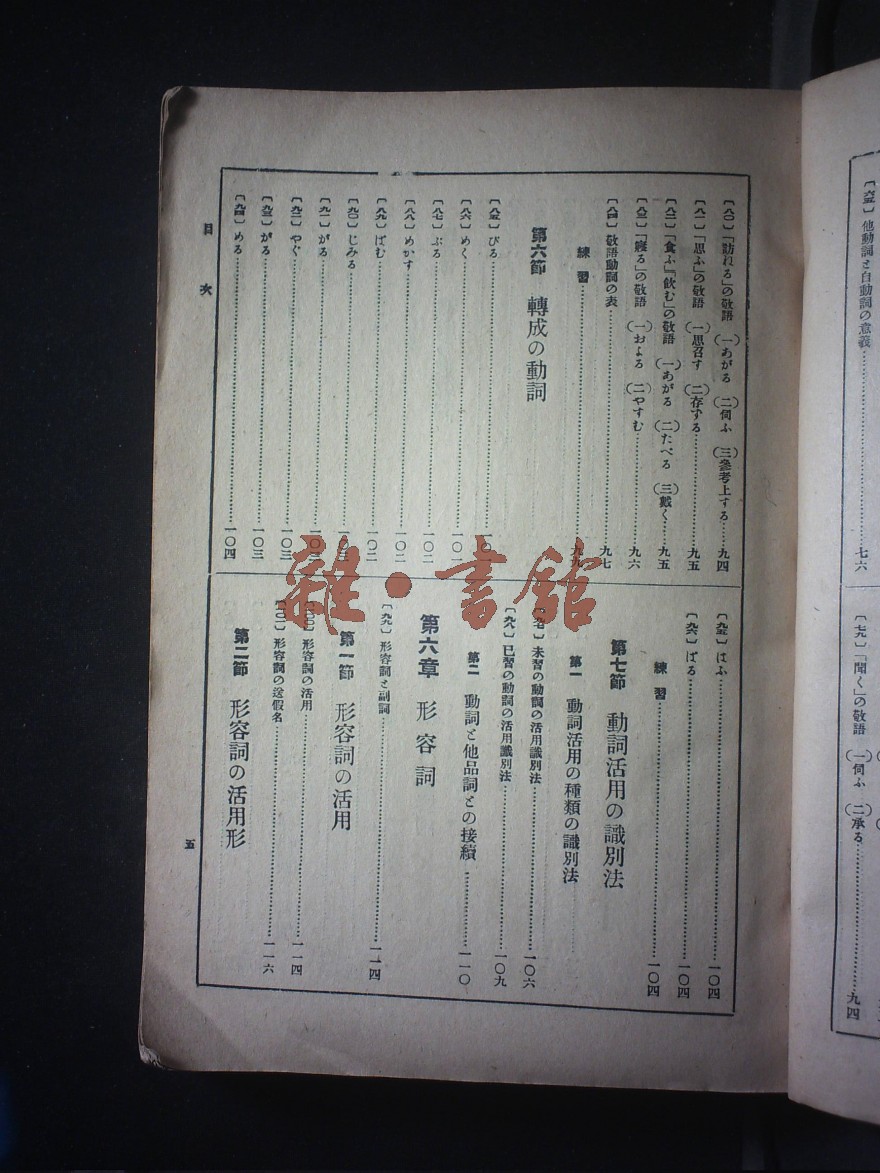 〔八〇〕「訪れる」の敬語 (一)あがる (二)伺ふ (三)參考上する……九四
〔八一〕「思ふ」の敬語 (一)思召す (二)存ずる……九五
〔八二〕「食ふ」「飮む」の敬語 (一)あがる (二)たべる (三)戴く……九五
〔八三〕「寢る」の敬語 (一)およる (二)やすむ……九六
〔八四〕敬語動詞の表……九七
練習……九九
第六節 轉成の動詞
〔八五〕びる……
〔八六〕めく……一〇一
〔八七〕ぶる……一〇二
〔八八〕めかす……一〇二
〔八九〕ばむ……一〇二
〔九〇〕じみる……
〔九一〕がる……
〔九二〕やぐ……一〇三
〔九三〕がる……一〇三
〔九四〕める……一〇四
〔九五〕はふ……一〇四
〔九六〕ばる……一〇四
練習……一〇四
第七節 動詞活用の識別法
第一 動詞活用の種類の識別法
〔九七〕未習の動詞の活用識別法……一〇六
〔九八〕已習の動詞の活用識別法……一〇九
第二 動詞と他品詞との接續……一一〇
第六章 形容詞
〔九九〕形容詞と副詞……一一四
第一節 形容詞の活用
形容詞の活用……一一四
形容詞の送假名……一一六
第二節 形容詞の活用形
目次
五
他動詞と自動詞の意義……七六
〔七九〕「聞く」の敬語 (一)伺ふ (二)承る……九四
雜・書館